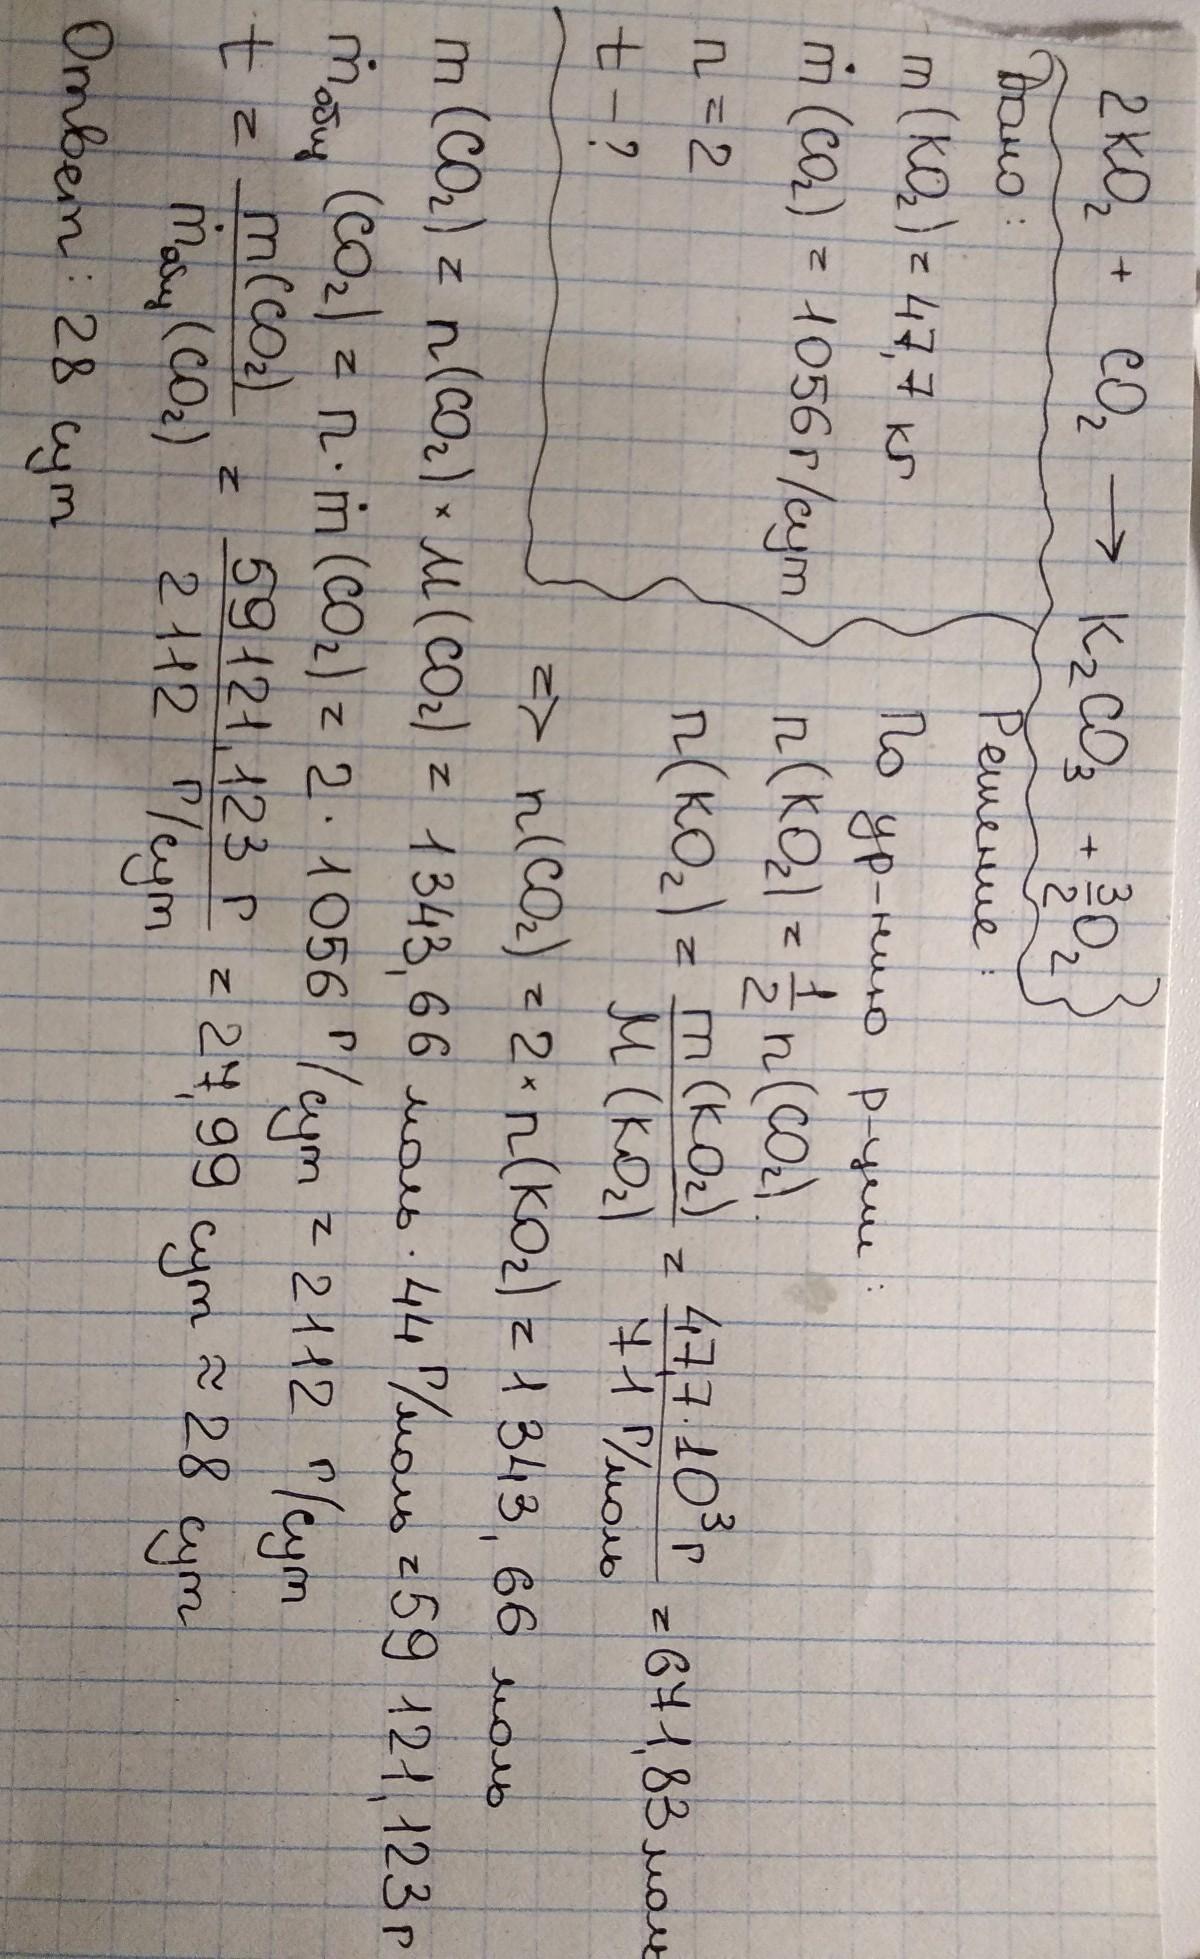 2KO₂ + CO₂ → K₂CO₃ + 3/2 O₂
Дано:
m(KO₂) = 47,7 кг
ṁ(CO₂) = 1056 г/сут
n = 2
t - ?
Решение:
По ур-нию р-ции:
n(KO₂) = 1/2 n(CO₂).
n(KO₂) = m(KO₂)/M(KO₂) = 47,7·10³ г/71 г/моль = 671,83 моль
=> n(CO₂) = 2 × n(KO₂) = 1343,66 моль
m(CO₂) = n(CO₂) × M(CO₂) = 1343,66 моль · 44 г/моль = 59 121,123 г
ṁобщ(CO₂) = n · ṁ(CO₂) = 2 · 1056 г/сут = 2112 г/сут
t = m(CO₂)/ṁобщ(CO₂) = 59121,123 г/2112 г/сут = 27,99 сут ≈ 28 сут
Ответ: 28 сут